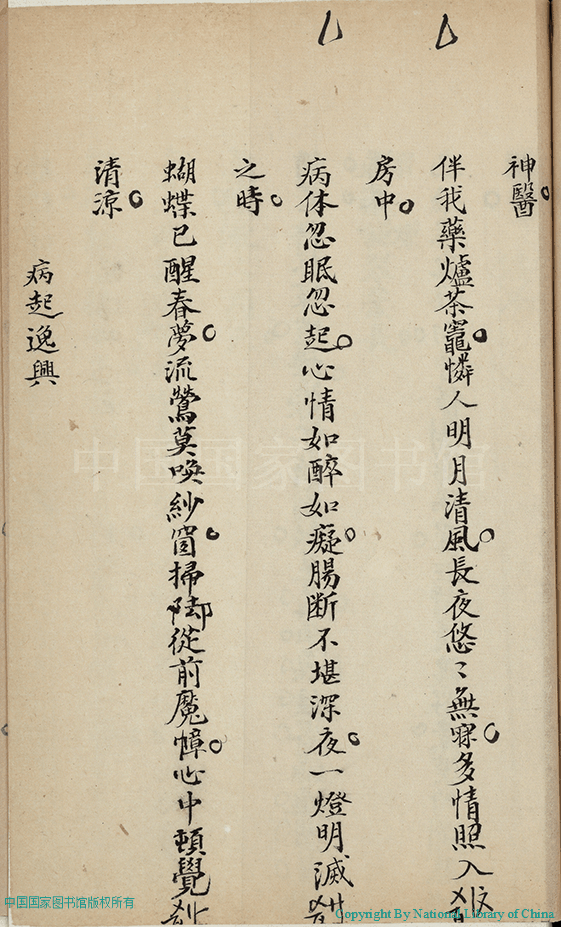 神醫。
伴我藥爐茶竈。憐人明月清風。長夜悠〻無寐。多情照入
房中。
病体忽眠忽起。心情如醉如癡。腸断不堪深夜。一燈明滅
之時。
蝴蝶已醒春夢。流鶯莫喚紗窗。掃却從前魔幛。心中頓覺
清涼。
病起逸興
中国国家图书馆
中国国家图书馆版权所有
Copyright By National Library of China